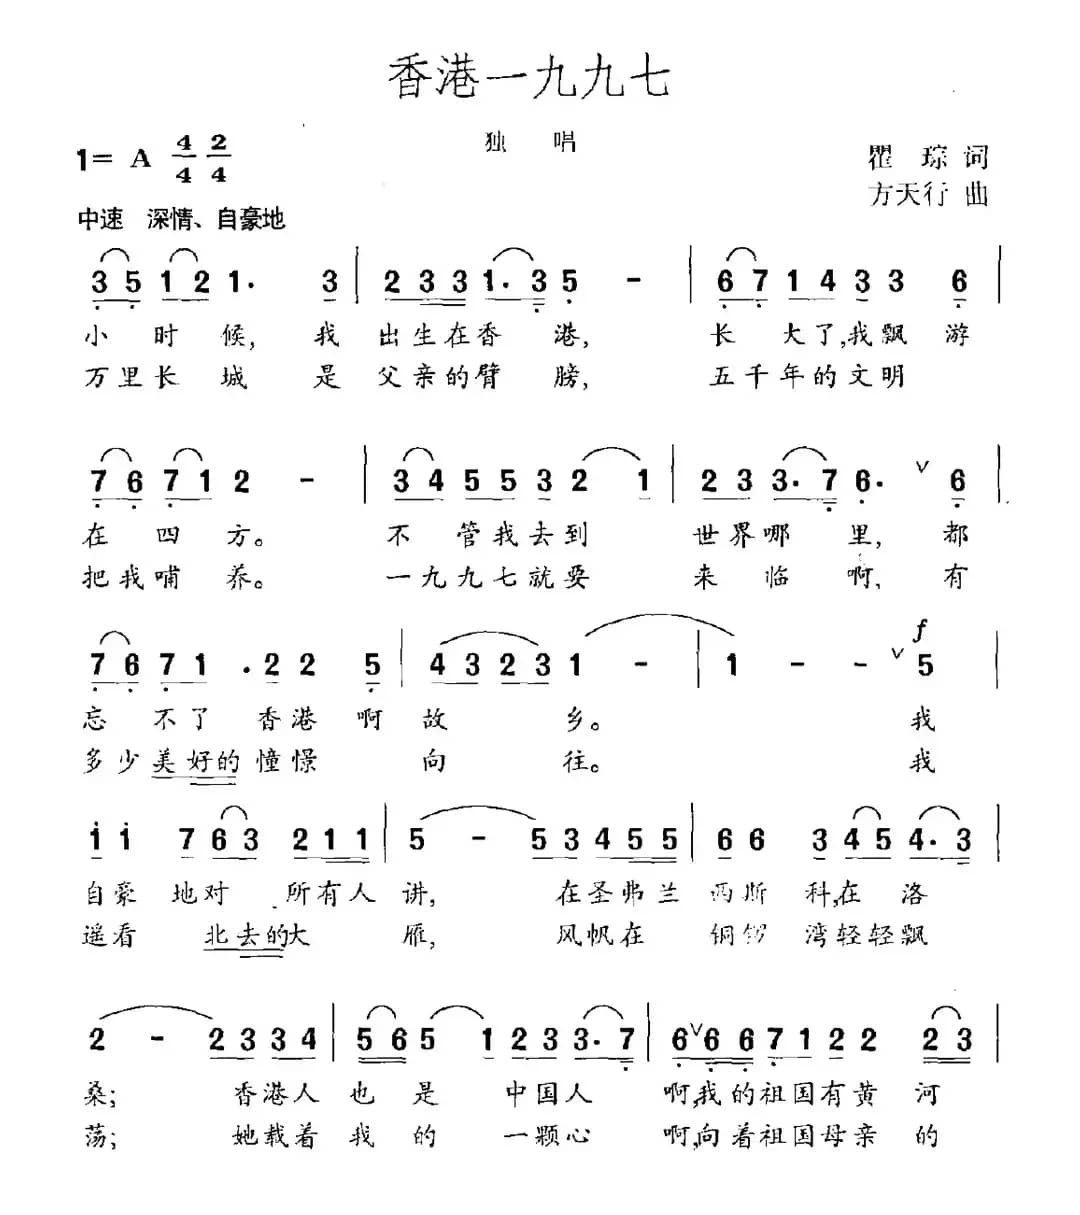 香港一九九七
独 唱
1= A 4/4 2/4
瞿 琮 词
方天行 曲
中速 深情、自豪地
3 5 1 2 1. 3 | 2 3 3 1. 3 5 - | 6 7 1 4 3 3 6 |
小 时 候, 我 出生在香 港, 长 大了,我飘游
万里长 城 是 父亲的臂 膀, 五千年的文明
7 6 7 1 2 - | 3 4 5 5 3 2 1 | 2 3 3. 7 6. ∨ 6 |
在 四 方。 不 管我去到 世界哪 里, 都
把我哺 养。 一九九七就要 来 临 啊, 有
7 6 7 1 . 2 2 5 | 4 3 2 3 1 - | 1 - - ∨ 5 |
f
忘 不了 香港 啊 故 乡。 我
多少美好的憧憬 向 往。 我
1 1 7 6 3 2 1 1 | 5 - 5 3 4 5 5 | 6 6 3 4 5 4. 3 |
自豪 地对 所有人 讲, 在圣弗兰 西斯 科,在 洛
遥看 北去的大 雁, 风帆在 铜锣 湾轻轻飘
2 - 2 3 3 4 | 5 6 5 1 2 3 3. 7 | 6 ∨ 6 6 7 1 2 2 2 3 |
桑; 香港人 也 是 中国人 啊,我的祖国有黄 河
荡; 她载着 我 的 一颗心 啊,向着祖国母亲 的